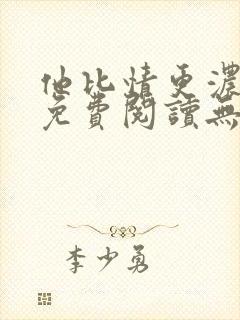 他比情更濃
免費閱讀無
李少勇